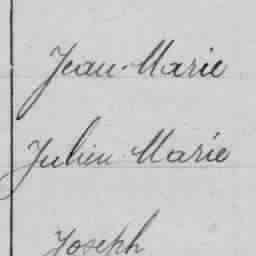 Jean-Marie
Julien Marie
Joseph